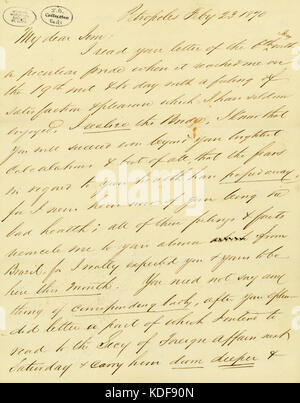 Petropolis Feby 23 1870
My dear Sam:
I read your letter of the
a peculiar pride when it reached me on
the 19th inst & to day with a feeling of
satisfaction & pleasure which I have seldom
enjoyed. I realize the Bridge. I know that
you will succeed even beyond your brightest
calculations & best of all, that the fears
in regard to your health are
for I never knew of your being in
bad health; all of these feelings & facts
reconcile me to your absence from
Brazil for I really expected you &
here this month. You need not say any
thing of corresponding badly, after your splen-
did letter a part of which I intend to
read to the Secy of Foreign Affairs next
Saturday & carry him down deeper &
alamy
Image ID: KDF90N
www.alamy.com